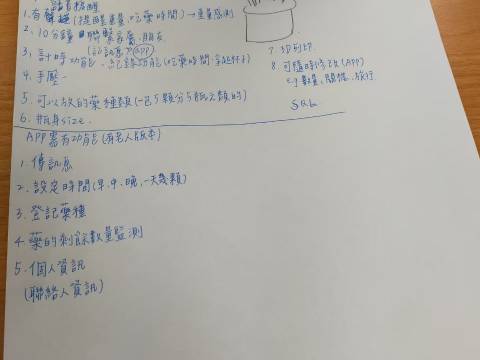 語音提醒
1. 有聲音(提醒重量,吃藥時間)→重量感測
2. 10分鐘 聯繫家屬、朋友
(記訊息)(APP)
3. 計時功能、紀錄功能(吃藥時間
4. 手壓
5. 可以放的藥種類(一包5顆分5瓶之類的)
6. 瓶身size.
7. 3D列印
8. 可隨時修改(APP)
e.g 數量、關懷、旅行
APP需有功能(有老人版本)
1. 傳訊息
2. 設定時間(早、中、晚、一天幾顆)
3. 登記藥種
4. 藥的剩餘數量監測
5. 個人資訊
(聯絡人資訊)